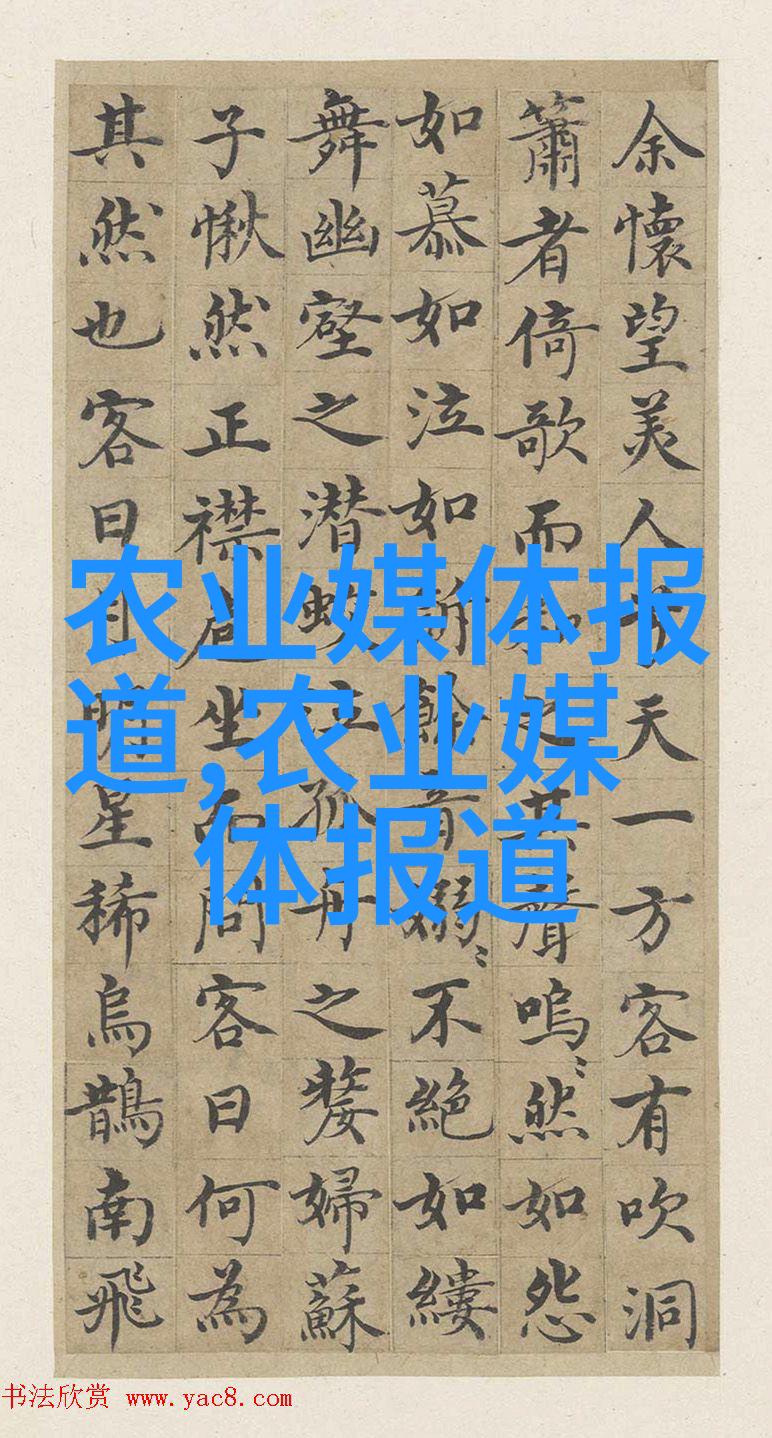 余懷望美人兮天一方客有吹洞
簫者倚歌而和之其聲嗚〻然如怨
如慕如泣如訴餘音嫋〻不絕如縷
舞幽壑之潜蛟泣孤舟之嫠婦蘇
子愀然正襟危坐而問客曰何為
其然也客曰月明星稀烏鵲南飛
农业媒体报
道,农业媒
体报道
书法欣赏 www.yac8.com